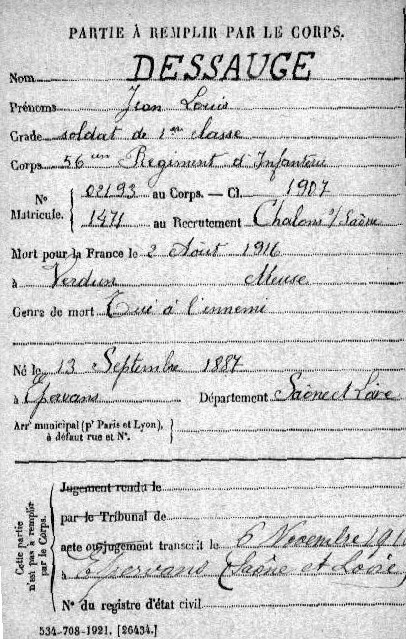 PARTIE À REMPLIR PAR LE CORPS.
Nom DESSAUGE
Prénoms Jean Louis
Grade soldat de 1re classe
Corps 56me Régiment d'Infanterie
N° Matricule. { 02193 au Corps. — Cl. 1907
1471 au Recrutement Chalons s/ Saône
Mort pour la France le 2 Août 1916
à Verdun Meuse
Genre de mort Tué à l'ennemi
Né le 13 Septembre 1887
à Epervans Département Saône et Loire
Arr^t municipal (p^r Paris et Lyon), à défaut rue et N°. }
Cette partie n'est pas à remplir par le Corps. {
Jugement rendu le
par le Tribunal de
acte ou jugement transcrit le 6 Novembre
à Epervans (Saône et Loire)
N° du registre d'état civil
534-708-1921. [26434.]